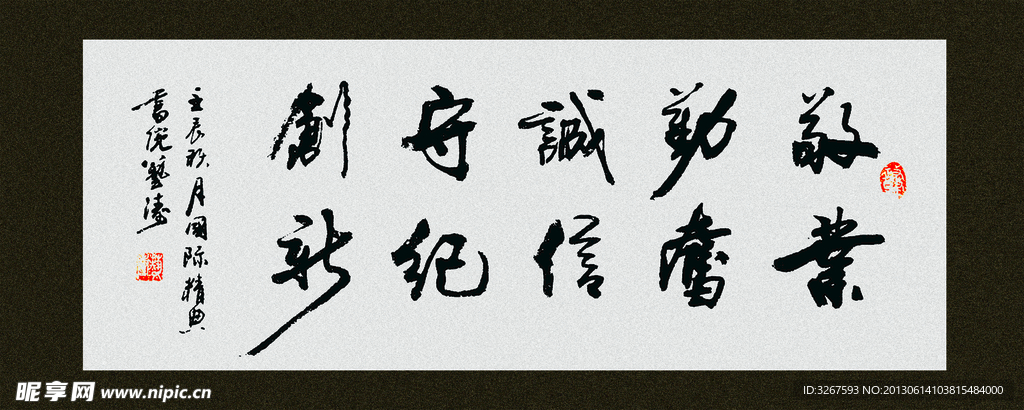 敬業
勤奮
誠信
守紀
創新
壬辰秋月國际精典
昵享网 www.nipic.cn
ID:3267593 NO:20130614103815484000